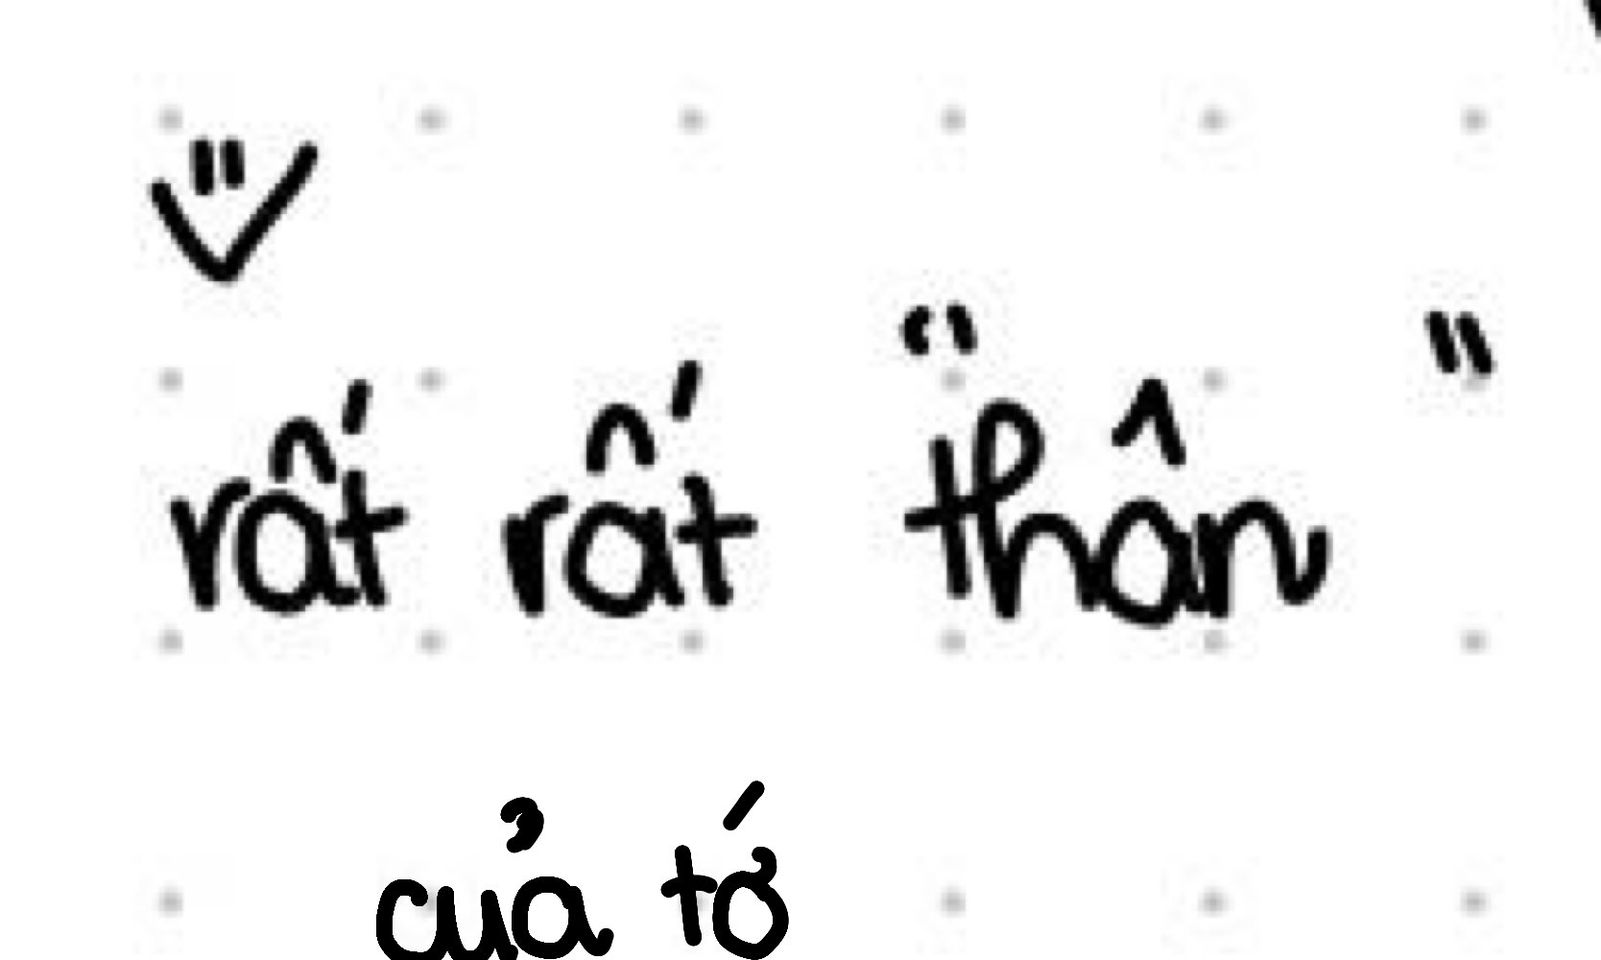 rất rất "thân"
của tớ